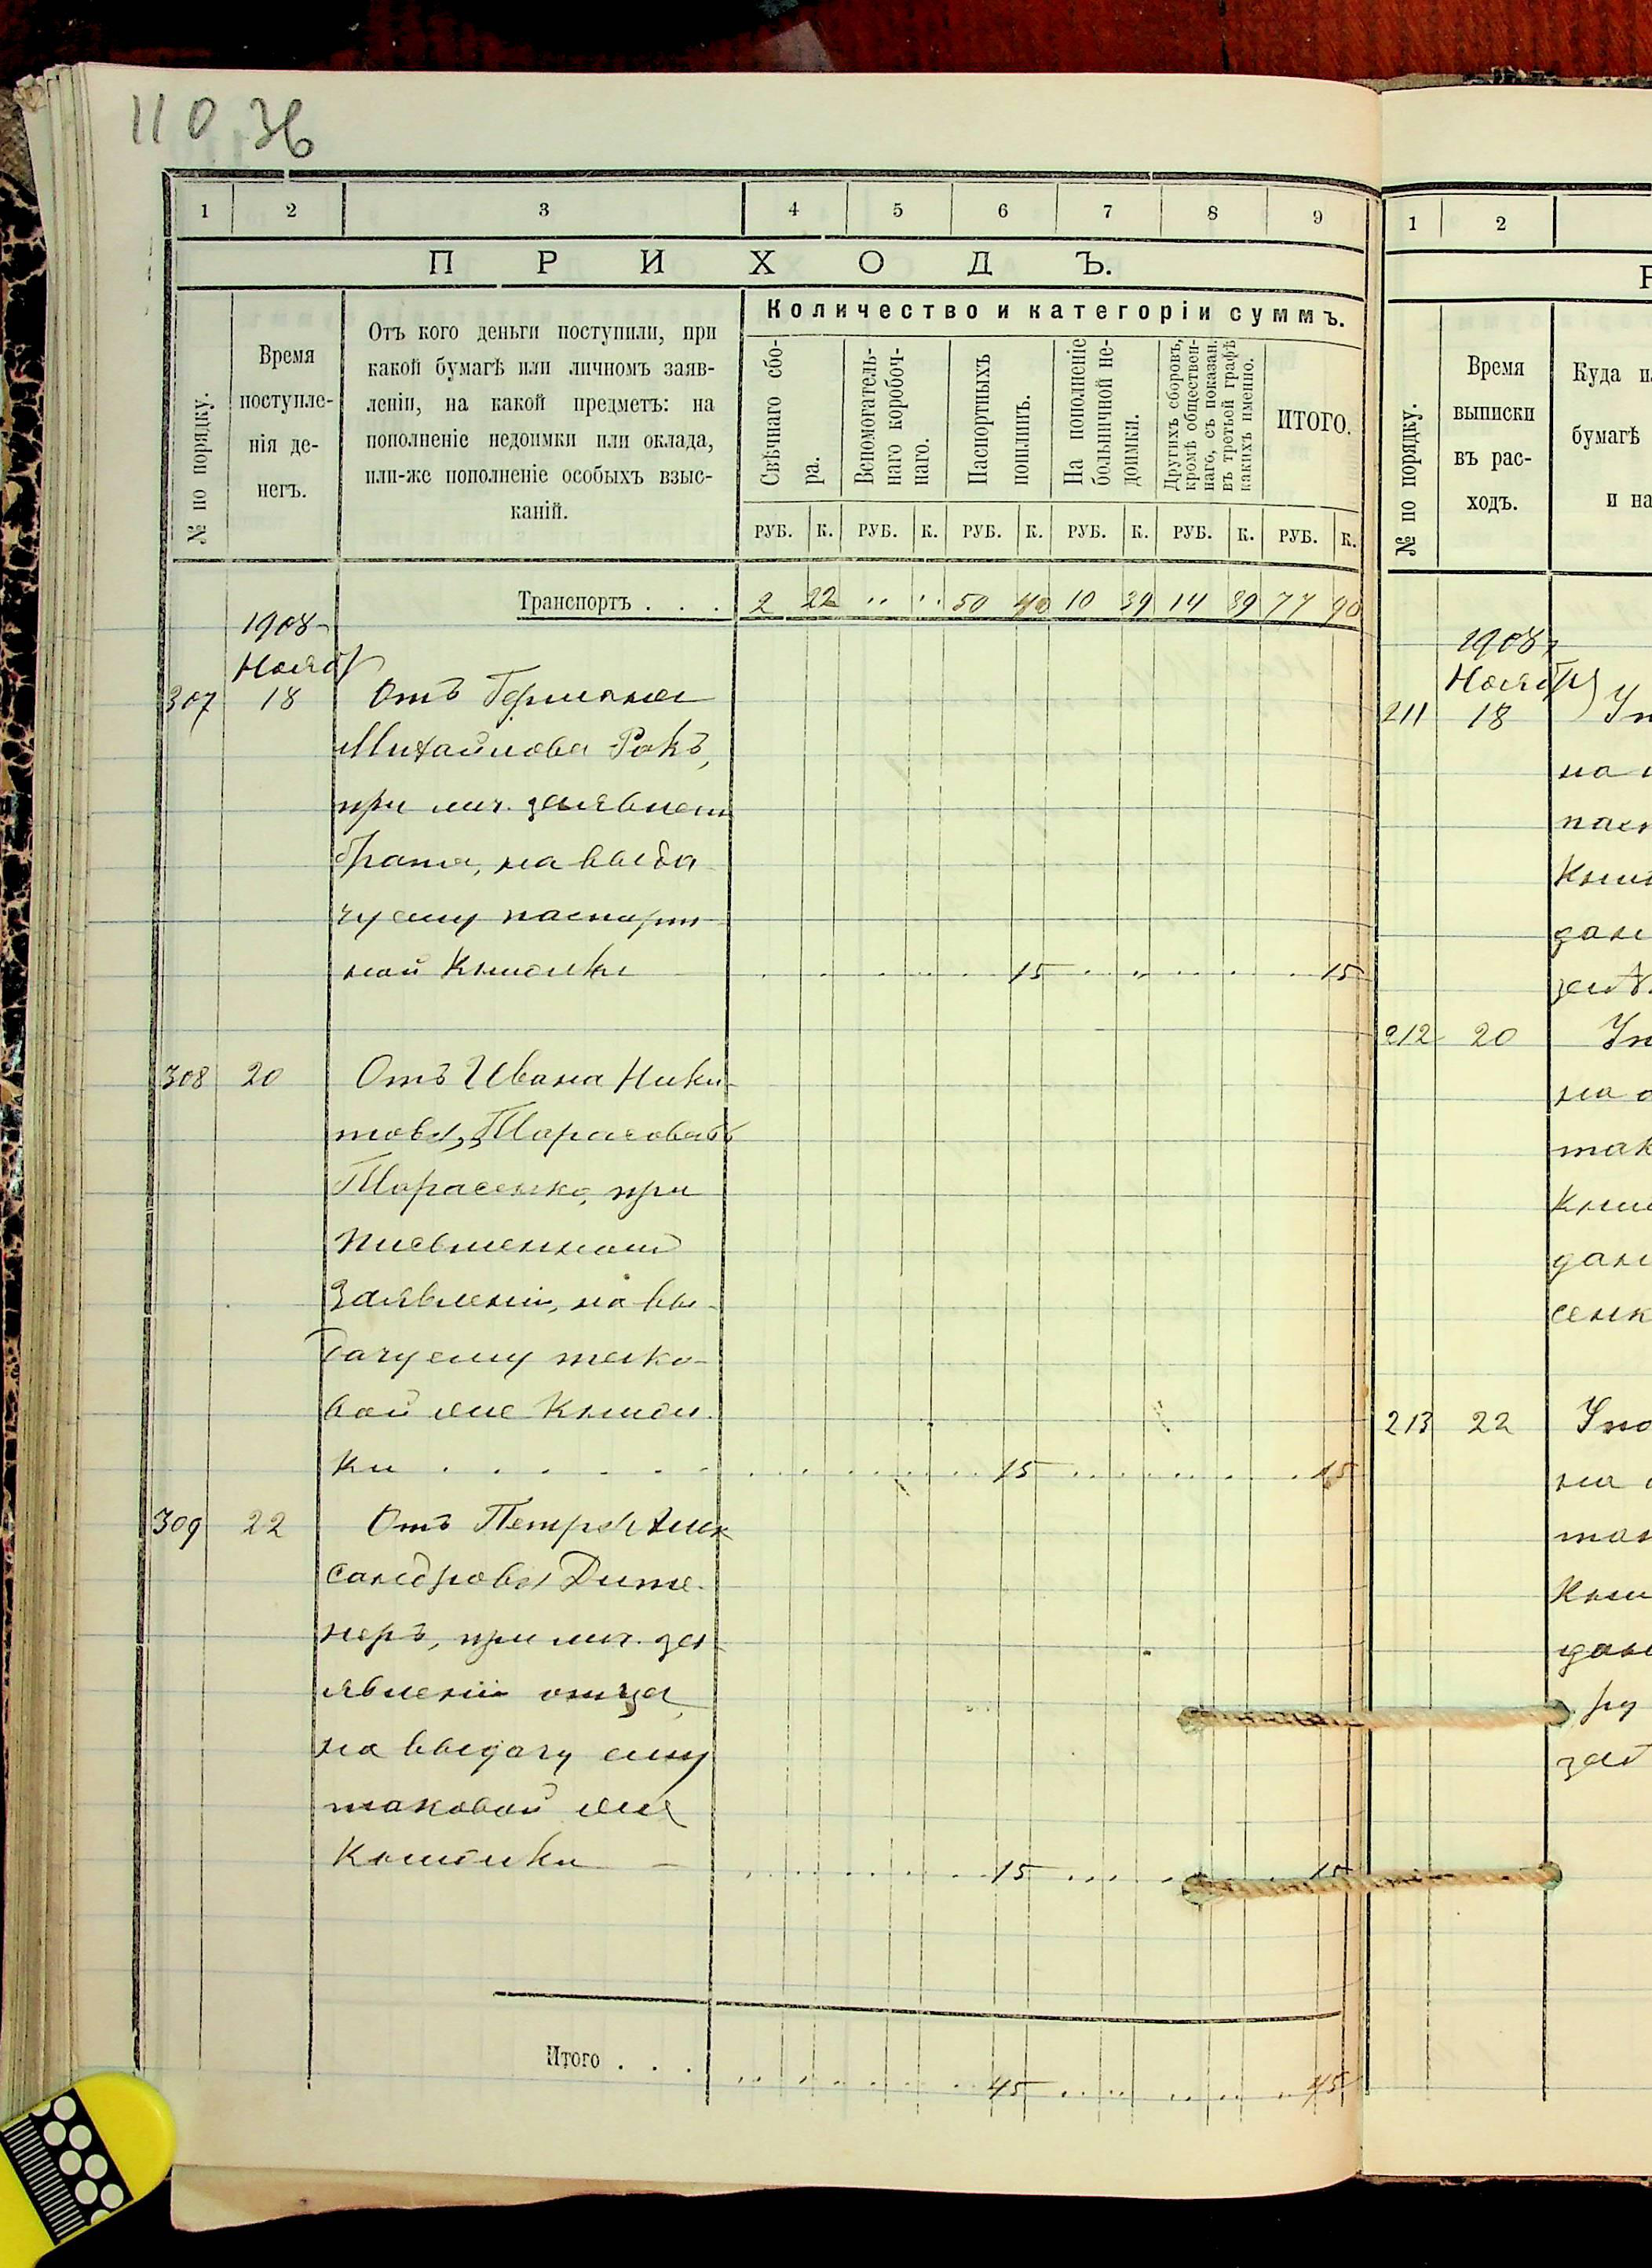 110 36
1 2 3 4 5 6 7 8 9
ПРИХОДЪ.
№ по порядку.
Время
поступле-
нія де-
негъ.
Отъ кого деньги поступили, при
какой бумагѣ или личномъ заяв-
леніи, на какой предметъ: на
пополненіе недоимки или оклада,
или-же пополненіе особыхъ взыс-
каній.
Количество и категоріи суммъ.
Свѣчнаго сбо-
ра.
Вспомогатель-
наго коробоч-
наго.
Паспортныхъ
пошлинъ.
На пополненіе
больничной не-
доимки.
Другихъ сборовъ,
кромѣ обществен-
наго, съ показан.
въ третьей графѣ
какихъ именно.
ИТОГО.
РУБ. К. РУБ. К. РУБ. К. РУБ. К. РУБ. К. РУБ. К.
Транспортъ . . . 2 22 " " 50 40 10 39 14 89 77 90
1908
Ноябр
307 18 Отъ Германа
Михайлова Ракъ,
при лич. заявлен
брата, на выда
чу ему паспорт
ной книжки 15 15
308 20 Отъ Ивана Ники-
това, Тарасова
Тарасенко, при
письменном
заявленіи, на вы-
дачу ему тако-
вой же книж
ки 15 15
309 22 Отъ Петра Алек
сандрова Дите-
неръ, при лич. за-
явленіи отца,
на выдачу ему
таковой же
книжки 15 15
Итого . . . 45 45
1 2
№ по порядку.
Время
выписки
въ рас-
ходъ.
Куда
бумагѣ
и на
1908
Ноябр
211 18
на
212 20
на
213 22
на